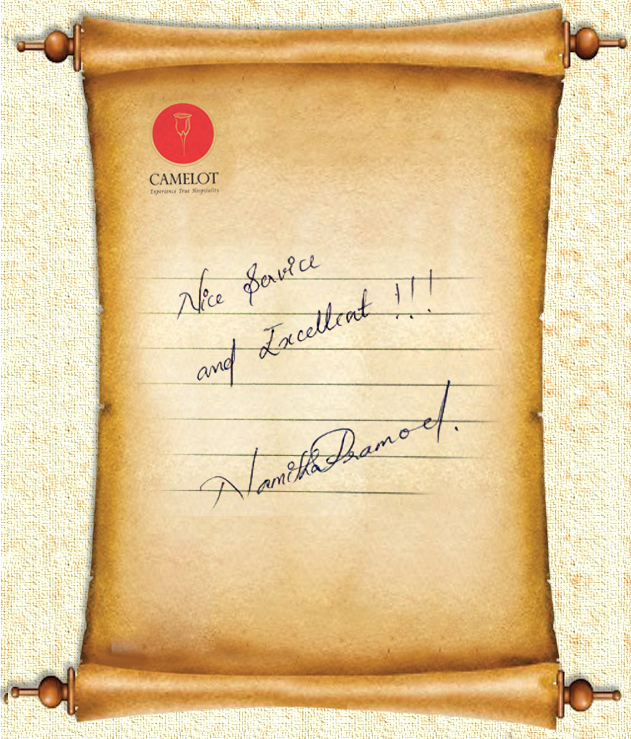 CAMELOT
Experience True Hospitality
Nice Service
and Excellent !!!
Namitha Pramod.